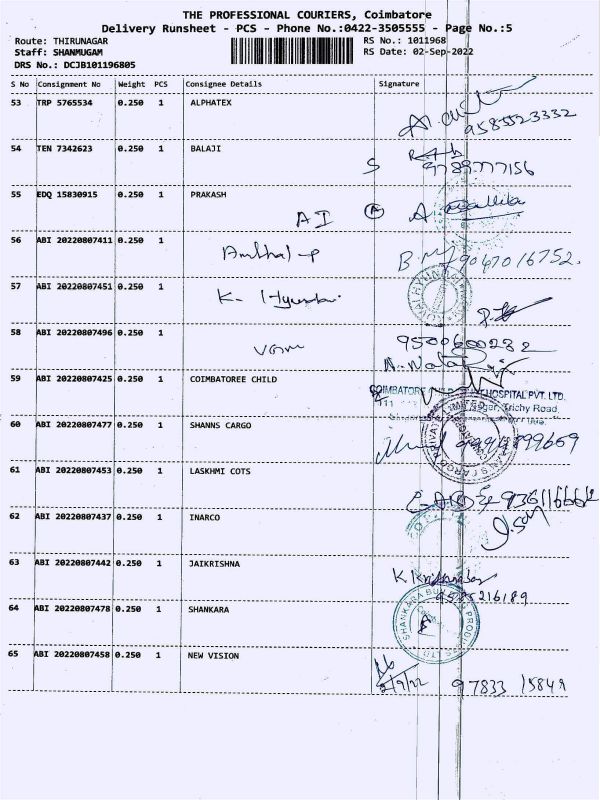 THE PROFESSIONAL COURIERS, Coimbatore
Delivery Runsheet - PCS - Phone No.:0422-3505555 - Page No.:5
Route: THIRUNAGAR RS No.: 1011968
Staff: SHANMUGAM RS Date: 02-Sep-2022
DRS No.: DCJB101196805
S No Consignment No Weight PCS Consignee Details Signature
53 TRP 5765534 0.250 1 ALPHATEX
9585523332
54 TEN 7342623 0.250 1 BALAJI
S 9789777156
55 EDQ 15830915 0.250 1 PRAKASH
AI A
56 ABI 20220807411 0.250 1
9047016752.
57 ABI 20220807451 0.250 1 K- Hyundai
58 ABI 20220807496 0.250 1
9500600282
59 ABI 20220807425 0.250 1 COIMBATOREE CHILD
COIMBATORE HOSPITAL PVT. LTD.
Trichy Road
60 ABI 20220807477 0.250 1 SHANNS CARGO
61 ABI 20220807453 0.250 1 LASKHMI COTS
62 ABI 20220807437 0.250 1 INARCO
63 ABI 20220807442 0.250 1 JAIKRISHNA
64 ABI 20220807478 0.250 1 SHANKARA
SHANKARA BUILDING PRODUCTS LTD
65 ABI 20220807458 0.250 1 NEW VISION
2/9/22 97833 15849